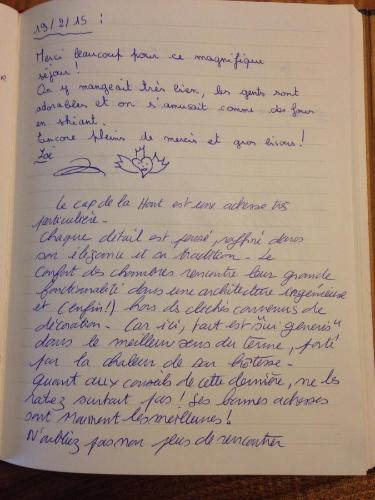 19/2/15 :
Merci beaucoup pour ce magnifique
séjour !
On y mangeait très bien, les gents sont
adorables et on s'amusait comme des fous
en skiant.
Encore pleins de mercis et gros bisous !
Zoé
Le cap de la Hont est une adresse très
particulière -
Chaque détail est pensé, raffiné dans
son élégance et sa tradition - Le
Confort des chambres rencontre leur grande
fonctionnalité dans une architecture ingénieuse
et (enfin !) hors des clichés convenus de
décoration - Car ici, tout est "sui generis"
dans le meilleur sens du terme, porté
par la chaleur de son hôtesse -
Quant aux conseils de cette dernière, ne les
ratez surtout pas ! Ses bonnes adresses
sont vraiment les meilleures !
N'oubliez pas non plus de rencontrer